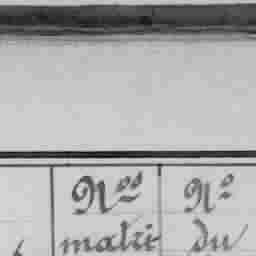 Nos No
matri du